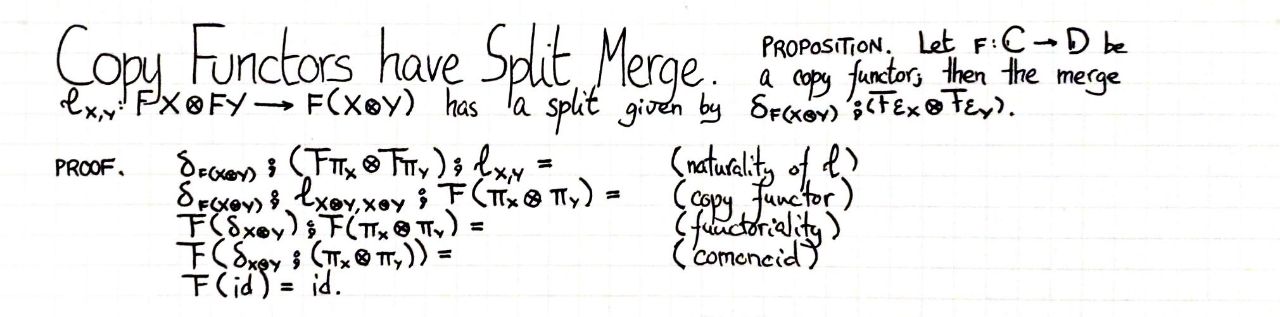 Copy Functors have Split Merge. PROPOSITION. Let F : ℂ → 𝔻 be
a copy functor; then the merge
ℓ_{X,Y} : FX ⊗ FY → F(X⊗Y) has a split given by δ_{F(X⊗Y)} ⨟ (Fε_X ⊗ Fε_Y).
PROOF. δ_{F(X⊗Y)} ⨟ (Fπ_X ⊗ Fπ_Y) ⨟ ℓ_{X,Y} = (naturality of ℓ)
δ_{F(X⊗Y)} ⨟ ℓ_{X⊗Y,X⊗Y} ⨟ F(π_X ⊗ π_Y) = (copy functor)
F(δ_{X⊗Y}) ⨟ F(π_X ⊗ π_Y) = (functoriality)
F(δ_{X⊗Y} ⨟ (π_X ⊗ π_Y)) = (comonoid)
F(id) = id.